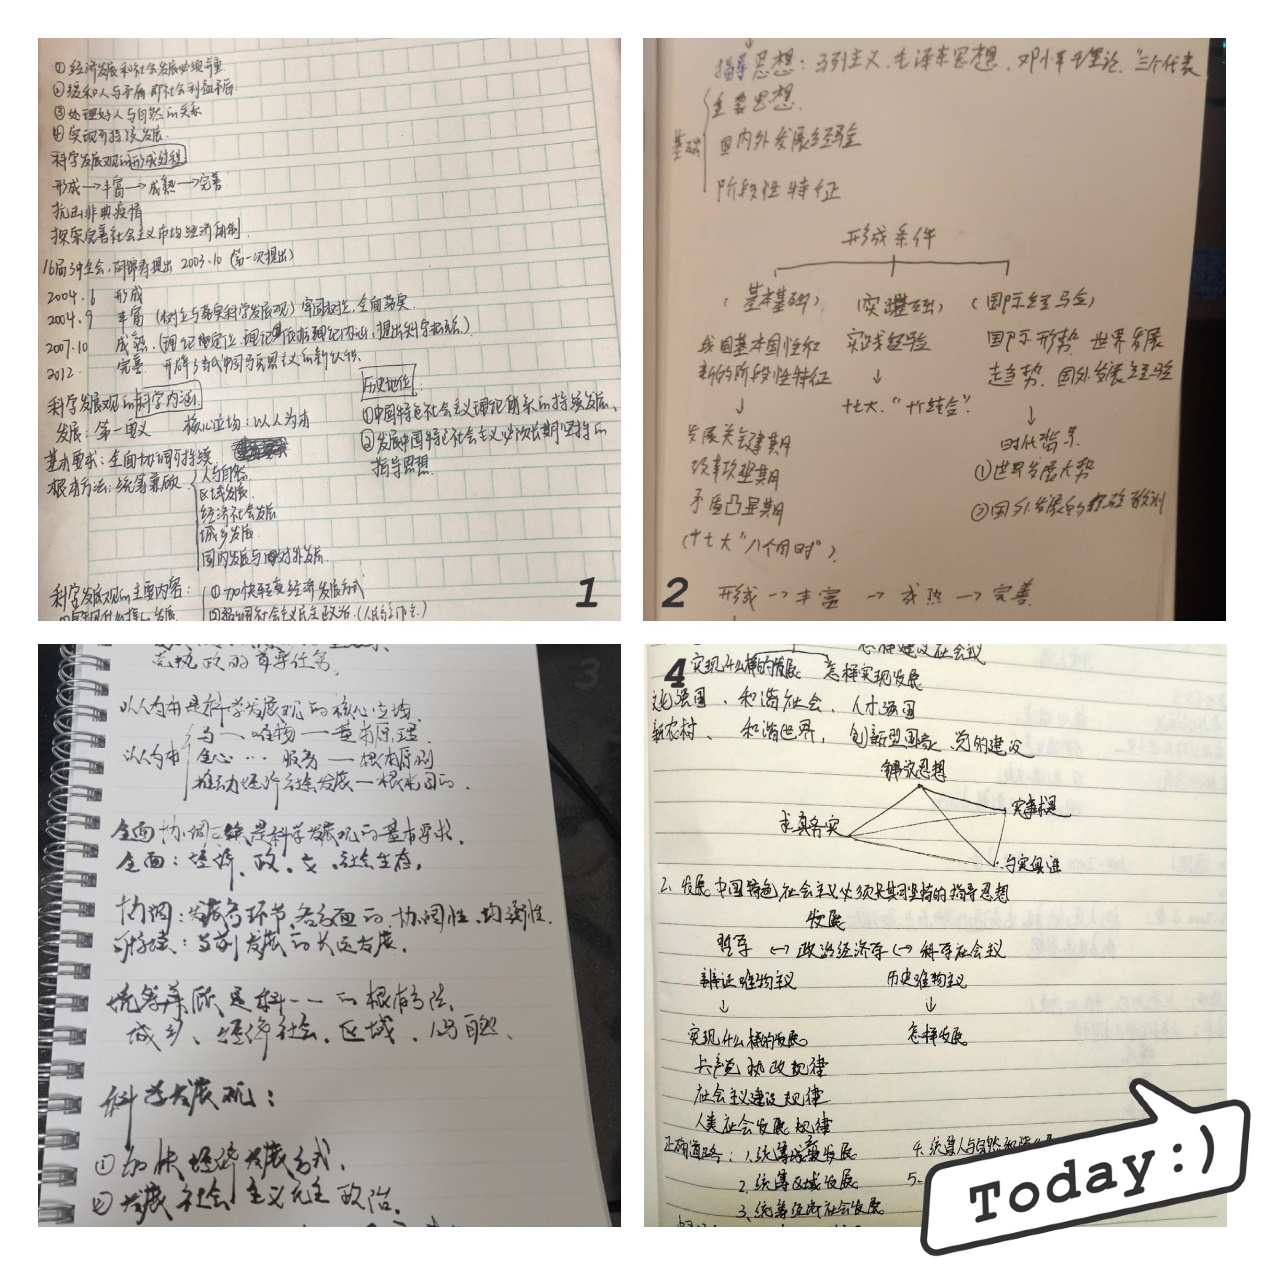 ①经济发展和社会发展必须并重
②缓和人与矛盾 即社会利益矛盾
③处理好人与自然的关系
④实现可持续发展
科学发展观的形成过程
形成→丰富→成熟→完善
抗击非典疫情
探索完善社会主义市场经济体制
16届3中全会,胡锦涛提出 2003.10 (第一次提出)
2004.6 形成
2004.9 丰富 (树立与落实科学发展观) 牢固树立,全面落实
2007.10 成熟
2012. 完善
科学发展观的科学内涵
发展:第一要义 核心立场:以人为本
基本要求:全面协调可持续
根本方法:统筹兼顾
人与自然
区域发展
经济社会发展
城乡发展
国内发展与对外发展
历史地位:
①中国特色社会主义理论体系的持续发展、
②发展中国特色社会主义必须长期坚持的
指导思想
科学发展观的主要内容:
①加快转变经济发展方式
②发展社会主义民主政治.(人民当家作主.)
1
指导思想:马列主义、毛泽东思想、邓小平理论、"三个代表
重要思想.
基础
国内外发展经验
阶段性特征
形成条件
(基本基础) (实践基础) (国际经验)
我国基本国情和
新的阶段性特征
↓
发展关键期
改革攻坚期
矛盾凸显期
(十七大"八个同时").
实践经验
↓
十七大."十个结合".
国际形势 世界发展
走趋势、国外发展经验
↓
时代背景
①世界发展大势
②国外发展的经验教训
2 形成→丰富→成熟→完善
3
党执政的首要任务.
以人为本是科学发展观的核心立场.
以人为本
马、唯物—基本原理
全心… 服务—根本原则
推动经济社会发展—根本目的.
全面协调可持续是科学发展观的基本要求.
全面:经济、政、文、社会生态,
协调:发展各环节,各方面的协调性.均衡性.
可持续:当前发展的长远发展.
统筹兼顾是科——的根本方法.
城乡、经济社会.区域.人与自然、
科学发展观:
①加快经济发展方式.
②发展社会主义民主政治.
4
怎样建设社会主义
实现什么样的发展 怎样实现发展
文化强国、和谐社会、人才强国
新农村、和谐世界,创新型国家、党的建设
解放思想
实事求是
求真务实
与时俱进
2.发展中国特色社会主义必须长期坚持的指导思想
发展
哲学 ↔ 政治经济学 ↔ 科学社会主义
辩证唯物主义 历史唯物主义
↓ ↓
实现什么样的发展 怎样发展
共产党执政规律
社会主义建设规律
人类社会发展规律
正确道路:1.统筹城乡发展 4.统筹人与自然和谐
2.统筹区域发展 5.
3.统筹经济社会发展
Today:)